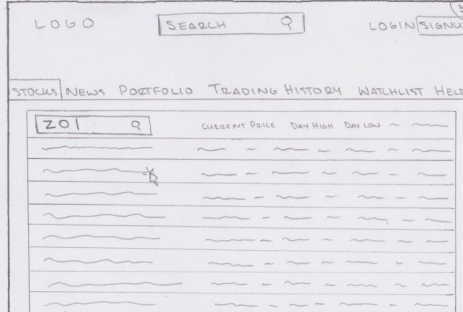 LOGO SEARCH LOGIN SIGNU
STOCKS NEWS PORTFOLIO TRADING HISTORY WATCHLIST HELP
ZO| CURRENT PRICE DAY HIGH DAY LOW